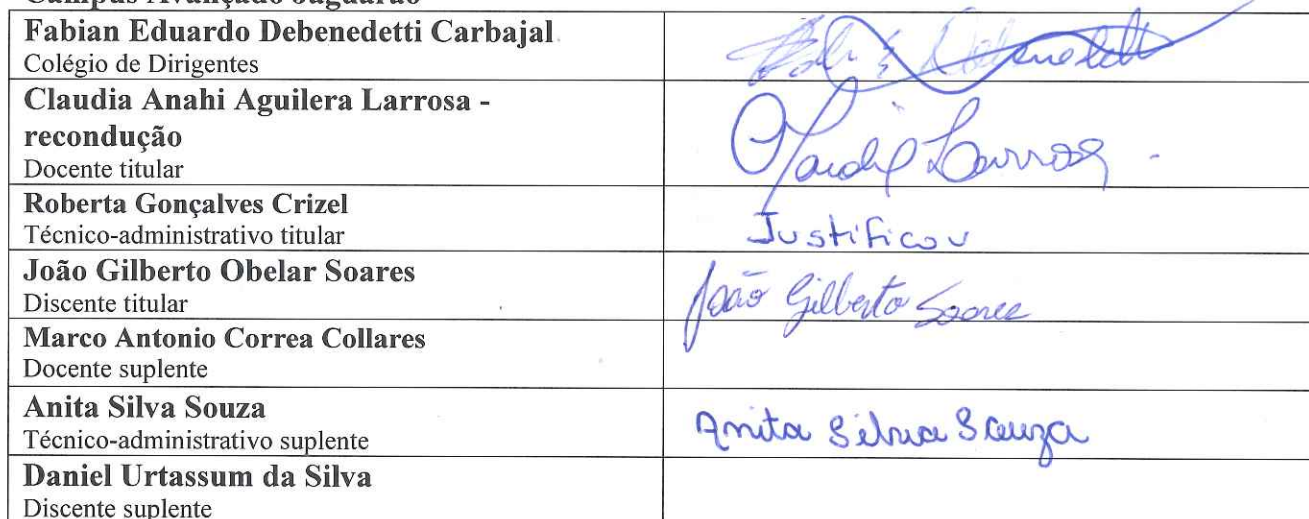 Campus Avançado Jaguarão
Fabian Eduardo Debenedetti Carbajal
Colégio de Dirigentes
Claudia Anahi Aguilera Larrosa -
recondução
Docente titular
Larrosa
Roberta Gonçalves Crizel
Técnico-administrativo titular
Justificou
João Gilberto Obelar Soares
Discente titular
João Gilberto Soares
Marco Antonio Correa Collares
Docente suplente
Anita Silva Souza
Técnico-administrativo suplente
Anita Silva Souza
Daniel Urtassum da Silva
Discente suplente